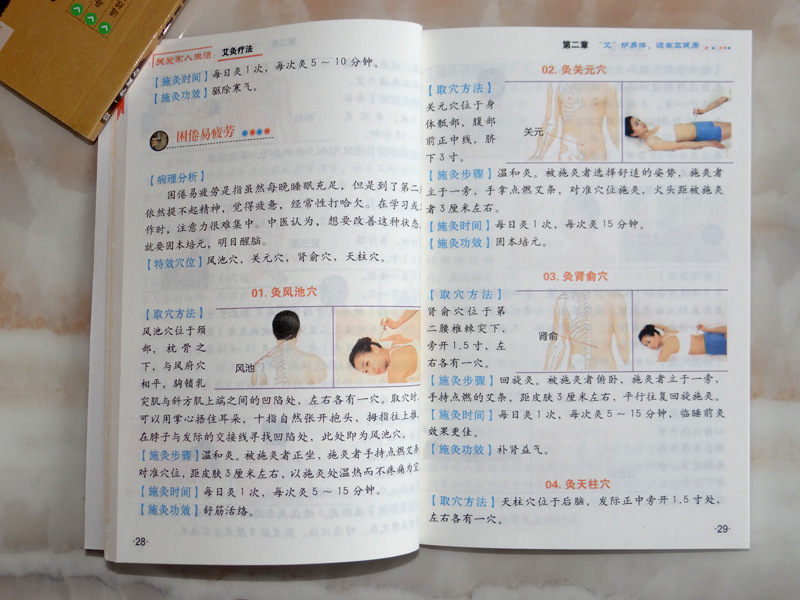 关爱家人生活
艾灸疗法
【施灸时间】每日灸1次，每次灸5～10分钟。
【施灸功效】驱除寒气。
困倦易疲劳
【病理分析】
困倦易疲劳是指虽然每晚睡眠充足，但是到了第二
依然提不起精神，觉得疲惫，经常性打哈欠。在学习或
作时，注意力很难集中。中医认为，想要改善这种状态，
就要固本培元，明目醒脑。
【特效穴位】风池穴，关元穴，肾俞穴，天柱穴。
01. 灸风池穴
【取穴方法】
风池穴位于颈
部，枕骨之
下，与风府穴
相平，胸锁乳
风池
突肌与斜方肌上端之间的凹陷处，左右各有一穴。取穴时，
可以用掌心捂住耳朵，十指自然张开抱头，拇指往上推，
在脖子与发际的交接线寻找凹陷处，此处即为风池穴。
【施灸步骤】温和灸。被施灸者正坐，施灸者手持点燃艾条
对准穴位，距皮肤3厘米左右，以施灸处温热而不疼痛为宜
【施灸时间】每日灸1次，每次灸5～15分钟。
【施灸功效】舒筋活络。
·28·
第二章 “艾”护身体，温出亚健康
02. 灸关元穴
【取穴方法】
关元穴位于身
体骶部，腹部
前正中线，脐
下3寸。
关元
【施灸步骤】温和灸。被施灸者选择舒适的姿势，施灸者
立于一旁，手拿点燃艾条，对准穴位施灸，火头距被施灸
者3厘米左右。
【施灸时间】每日灸1次，每次灸15分钟。
【施灸功效】固本培元。
03. 灸肾俞穴
【取穴方法】
肾俞穴位于第
二腰椎棘突下，
旁开1.5寸，左
右各有一穴。
肾俞
【施灸步骤】回旋灸。被施灸者俯卧，施灸者立于一旁，
手持点燃的艾条，距皮肤3厘米左右，平行往复回旋施灸。
【施灸时间】每日灸1次，每次灸5～15分钟，临睡前灸
效果更佳。
【施灸功效】补肾益气。
04. 灸天柱穴
【取穴方法】天柱穴位于后脑，发际正中旁开1.5寸处，
左右各有一穴。
·29·